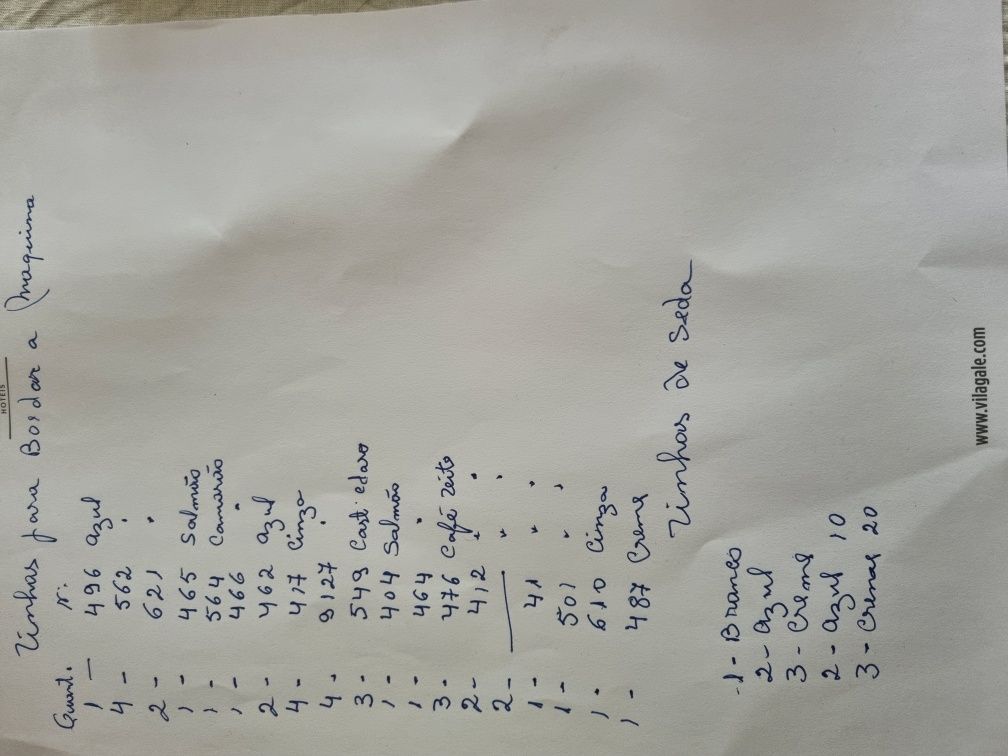 HOTEIS
Linhas para Bordar a Maquina
Quant. Nº.
1 — 496 azul
4 - 562 "
2 - 621 "
1 - 465 Salmão
1 - 564 Camarão
1 - 466 "
2 - 462 azul
4 - 417 Cinza
4 - 9127 "
3 - 549 Cast. claro
1 - 404 Salmão
1 - 464 "
3 - 476 Café leite
2 - 412 " "
2 - —— " "
1 - 41 " "
1 - 501 " "
1 - 610 Cinza
1 - 487 Creme
Linhas de Seda
1 - Branco
2 - azul
3 - Creme
2 - azul 10
3 - Creme 20
www.vilagale.com